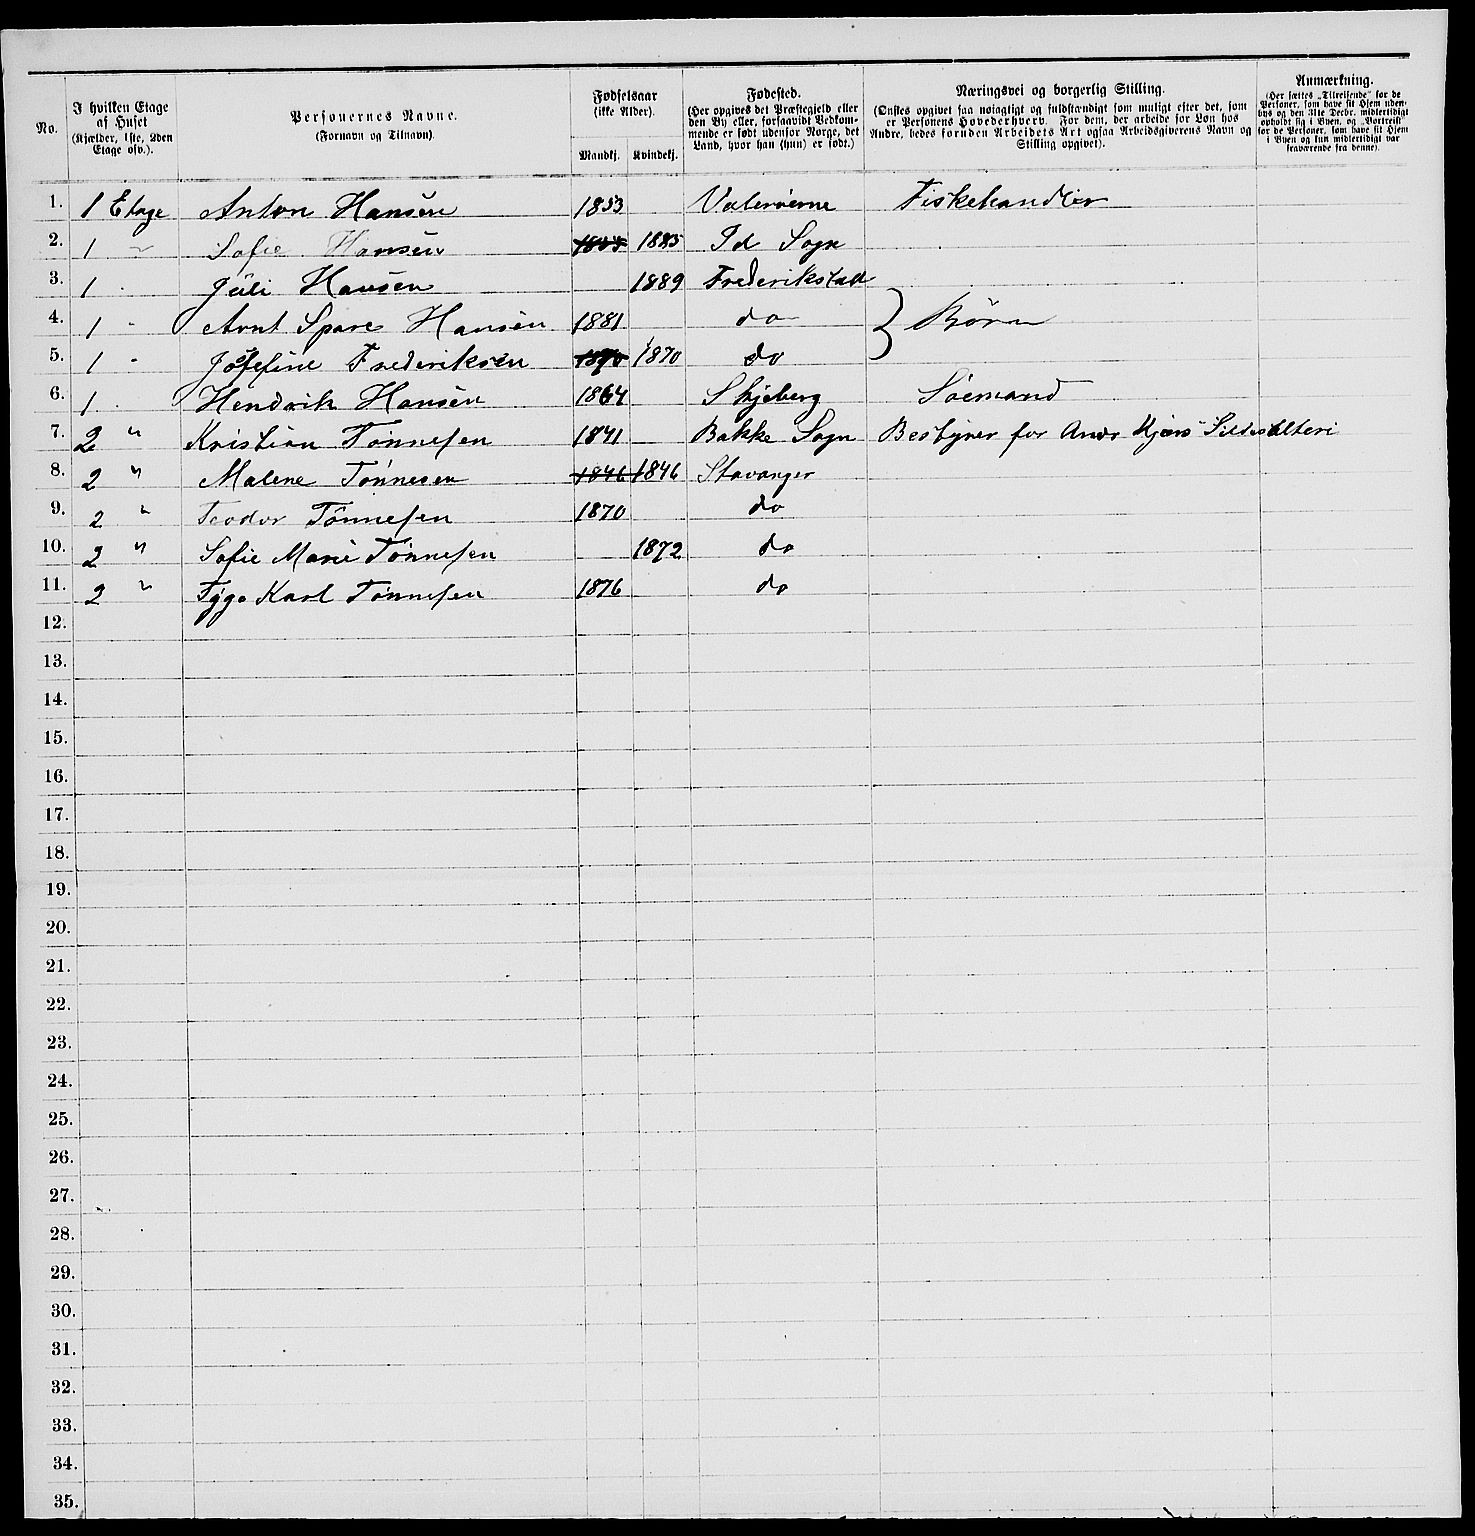 No.
I hvilken Etage af Huset (Kjælder, 1ste, 2den Etage osv.).
Personernes Navne. (Fornavn og Tilnavn).
Fødselsaar (ikke Alder).
Mandkj. Kvindekj.
Fødested. (Her opgives det Præstegjeld eller den By eller, forsaavidt Vedkommende er født udenfor Norge, det Land, hvor han (hun) er født.)
Næringsvei og borgerlig Stilling. (Ønskes opgivet saa nøiagtigt og fuldstændigt som muligt efter det, som er Personens Hovederhverv. For dem, der arbeide for Løn hos Andre, bedes foruden Arbeidets Art ogsaa Arbeidsgiverens Navn og Stilling opgivet).
Anmærkning. (Her sættes „Tilreisende" for de Personer, som have sit Hjem udenbys og den 31te Decbr. midlertidigt opholdt sig i Byen, og „Bortreist" for de Personer, som have sit Hjem i Byen og kun midlertidigt var fraværende fra denne).
1. 1 Etage Anton Hansen 1853 Valerøerne Fiskehandler
2. 1 " Sofie Hansen 1885 Id Sogn
3. 1 " Juli Hansen 1889 Frederikstad
4. 1 " Arnt Spare Hansen 1881 do } Børn
5. 1 " Josefine Frederiksen 1870 do
6. 1 " Hendrik Hansen 1864 Skjeberg Sømand
7. 2 " Kristian Tønnesen 1841 Bakke Sogn Bestyrer for Andr Kjærs Sildesalteri
8. 2 " Malene Tønnesen 1846 1846 Stavanger
9. 2 " Teodor Tønnesen 1870 do
10. 2 " Sofie Marie Tønnesen 1872 do
11. 2 " Tygo Karl Tønnesen 1876 do
12.
13.
14.
15.
16.
17.
18.
19.
20.
21.
22.
23.
24.
25.
26.
27.
28.
29.
30.
31.
32.
33.
34.
35.